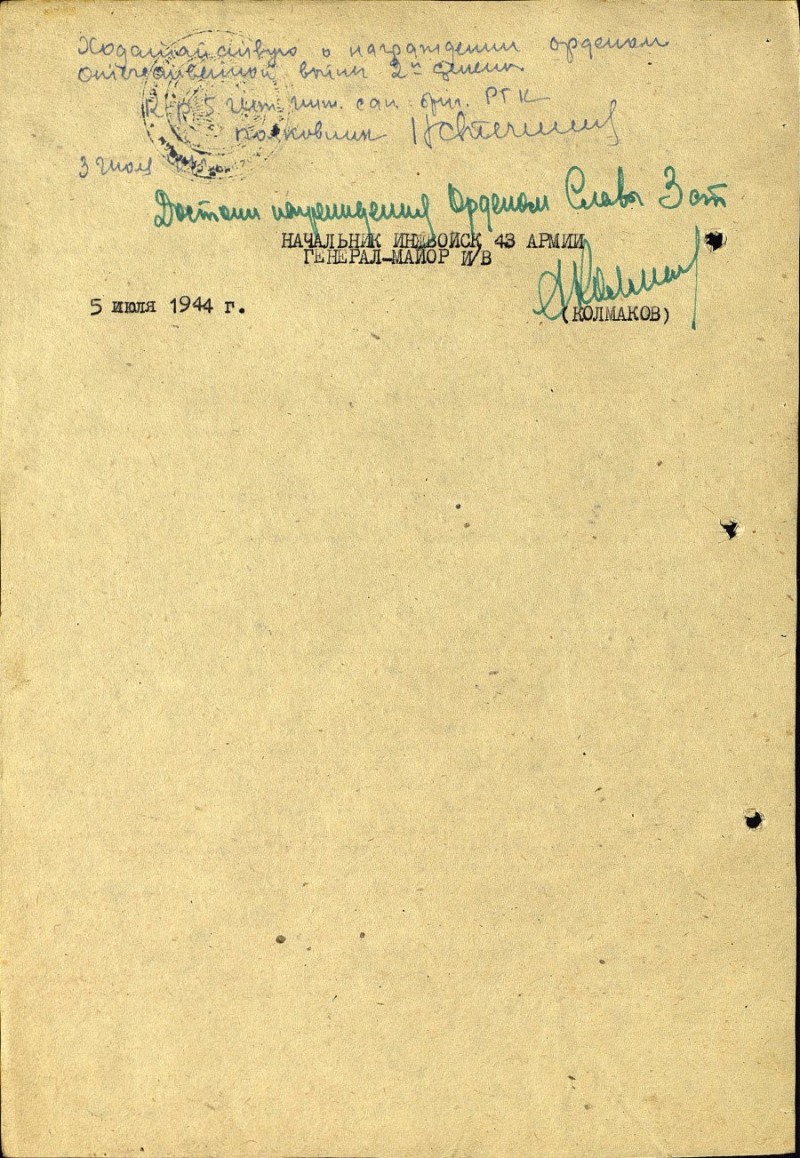 Ходатайствую о награждении орденом
Отечественной войны 2й степени
К-р 5 шт. инж. сап. бриг. РГК
полковник
3 июля
Достоин награждения Орденом Славы 3 ст
НАЧАЛЬНИК ИНЖВОЙСК 43 АРМИИ
ГЕНЕРАЛ-МАЙОР И/В
5 июля 1944 г.
(КОЛМАКОВ)